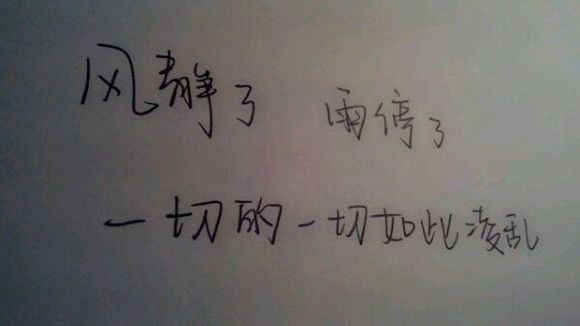 风静了 雨停了
一切的一切如此凌乱